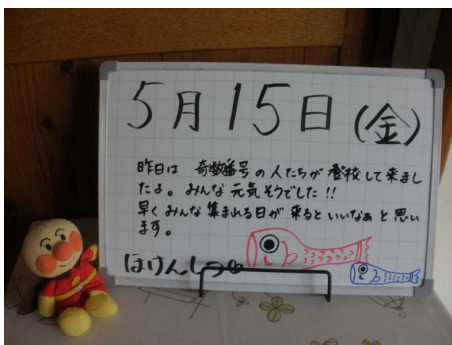 5月15日(金)
昨日は 奇数番号の人たちが登校して来まし
たよ。みんな元気そうでした!!
早くみんな集まれる日が来るといいなぁと思い
ます。
ほけんしつ